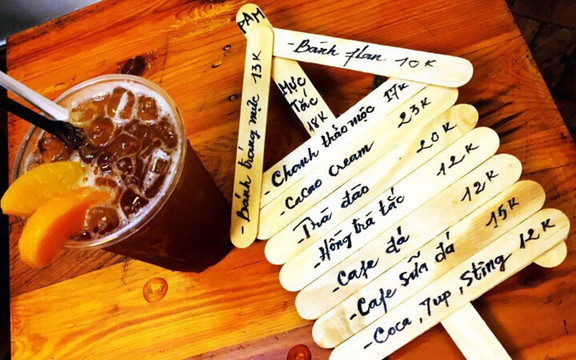 PAM
- Bánh tráng mực 13K
- Bánh flan 10K
Mực Tắc 18K
- Chanh thảo mộc 17K
- Cacao cream 23K
- Trà đào 20K
- Hồng trà tắc 12K
- Cafe đá 12K
- Cafe sữa đá 15K
- Coca, 7up, Sting 12K